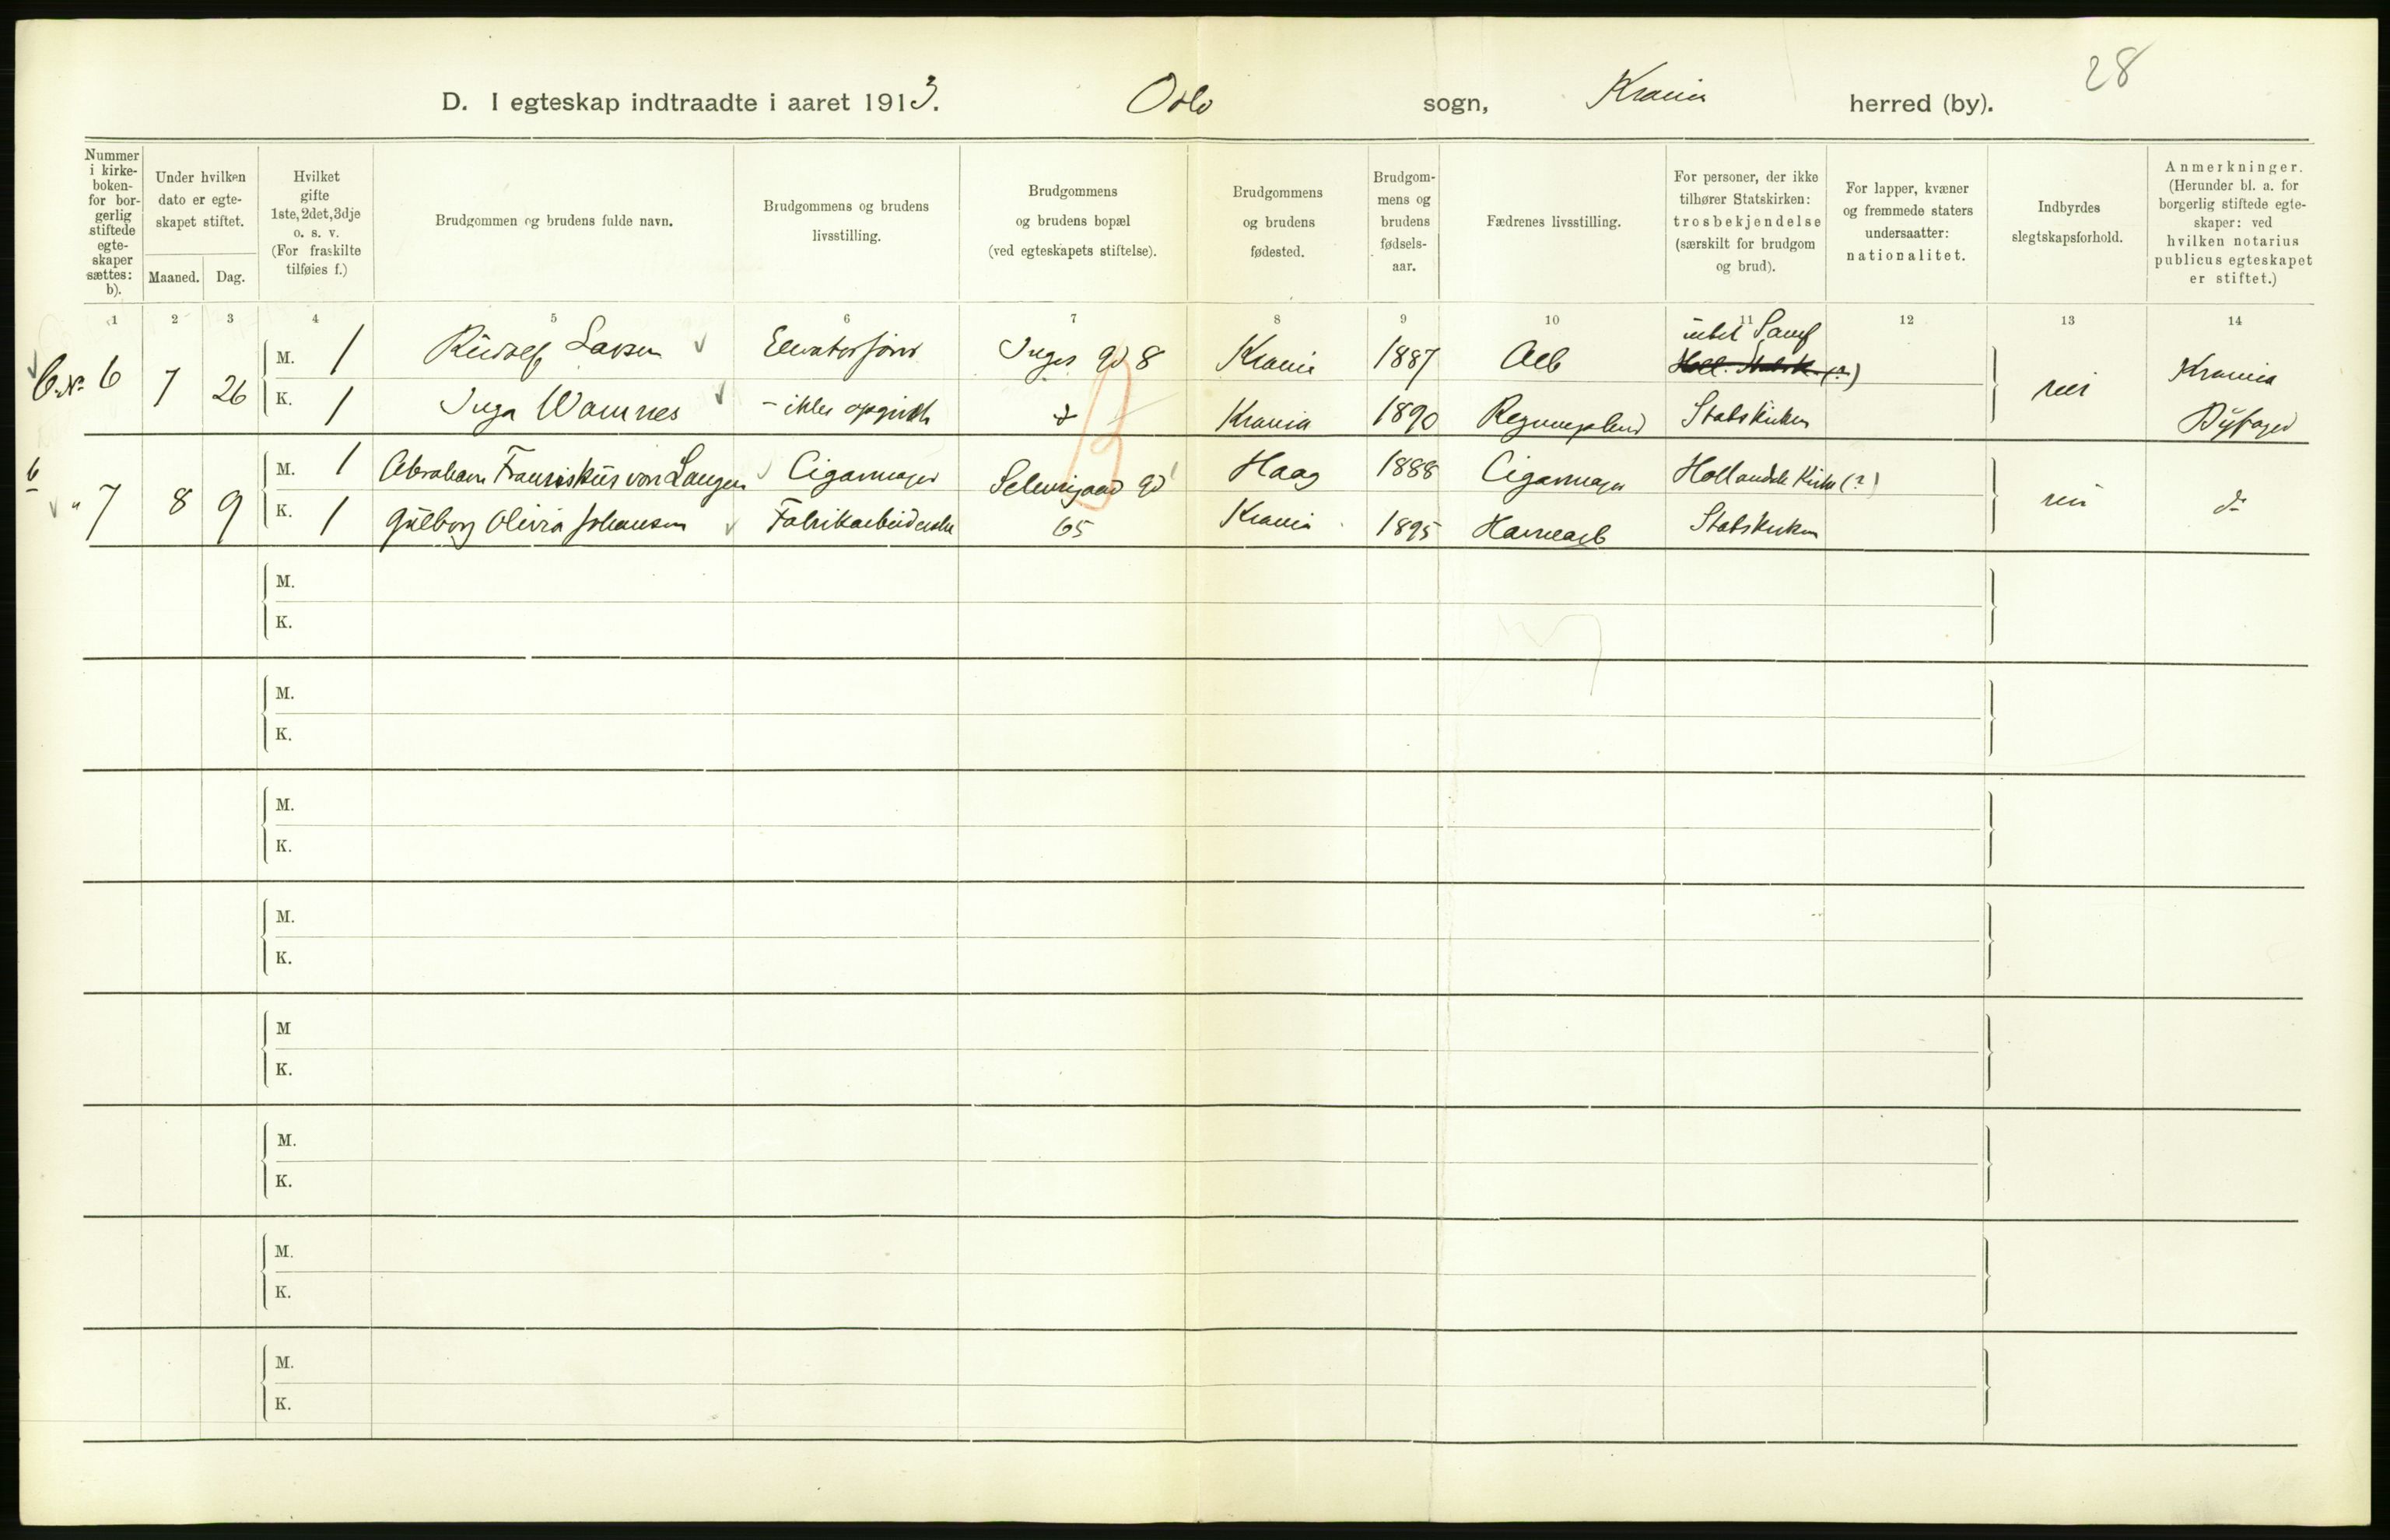 28
D. I egteskap indtraadte i aaret 1913. Oslo sogn, Krania herred (by).
Nummer i kirke- boken- for bor- gerlig stiftede egte- skaper sættes: b).
Under hvilken dato er egte- skapet stiftet.
Maaned. Dag.
Hvilket gifte 1ste, 2det, 3dje o. s. v. (For fraskilte tilføies f.)
Brudgommen og brudens fulde navn.
Brudgommens og brudens livsstilling.
Brudgommens og brudens bopæl (ved egteskapets stiftelse).
Brudgommens og brudens fødested.
Brudgom- mens og brudens fødsels- aar.
Fædrenes livsstilling.
For personer, der ikke tilhører Statskirken: trosbekjendelse (særskilt for brudgom og brud).
For lapper, kvæner og fremmede staters undersaatter: nationalitet.
Indbyrdes slegtskapsforhold.
Anmerkninger. (Herunder bl. a. for borgerlig stiftede egte- skaper: ved hvilken notarius publicus egteskapet er stiftet.)
1 2 3 4 5 6 7 8 9 10 11 12 13 14
b. No. 6 7 26 M. 1 Rudolf Larsen Elevatorfører Inges gd 8 Krania 1887 Arb intet Samf Holl. Statsk. (?) nei Krania
K. 1 Inga Wamnes - ikke opgivet do Krania 1890 Statskirken Byfoged
b " 7 8 9 M. 1 Abraham Franciskus von Langen Cigarmager gd Haag 1888 Cigarmager Hollandske Kirke (?) nei do
K. 1 Gülborg Olivia Johansen Fabrikarbeiderske 65 Krania 1895 Havnearb Statskirken
M.
K.
M.
K.
M.
K.
M.
K.
M
K.
M.
K.
M.
K.
M.
K.